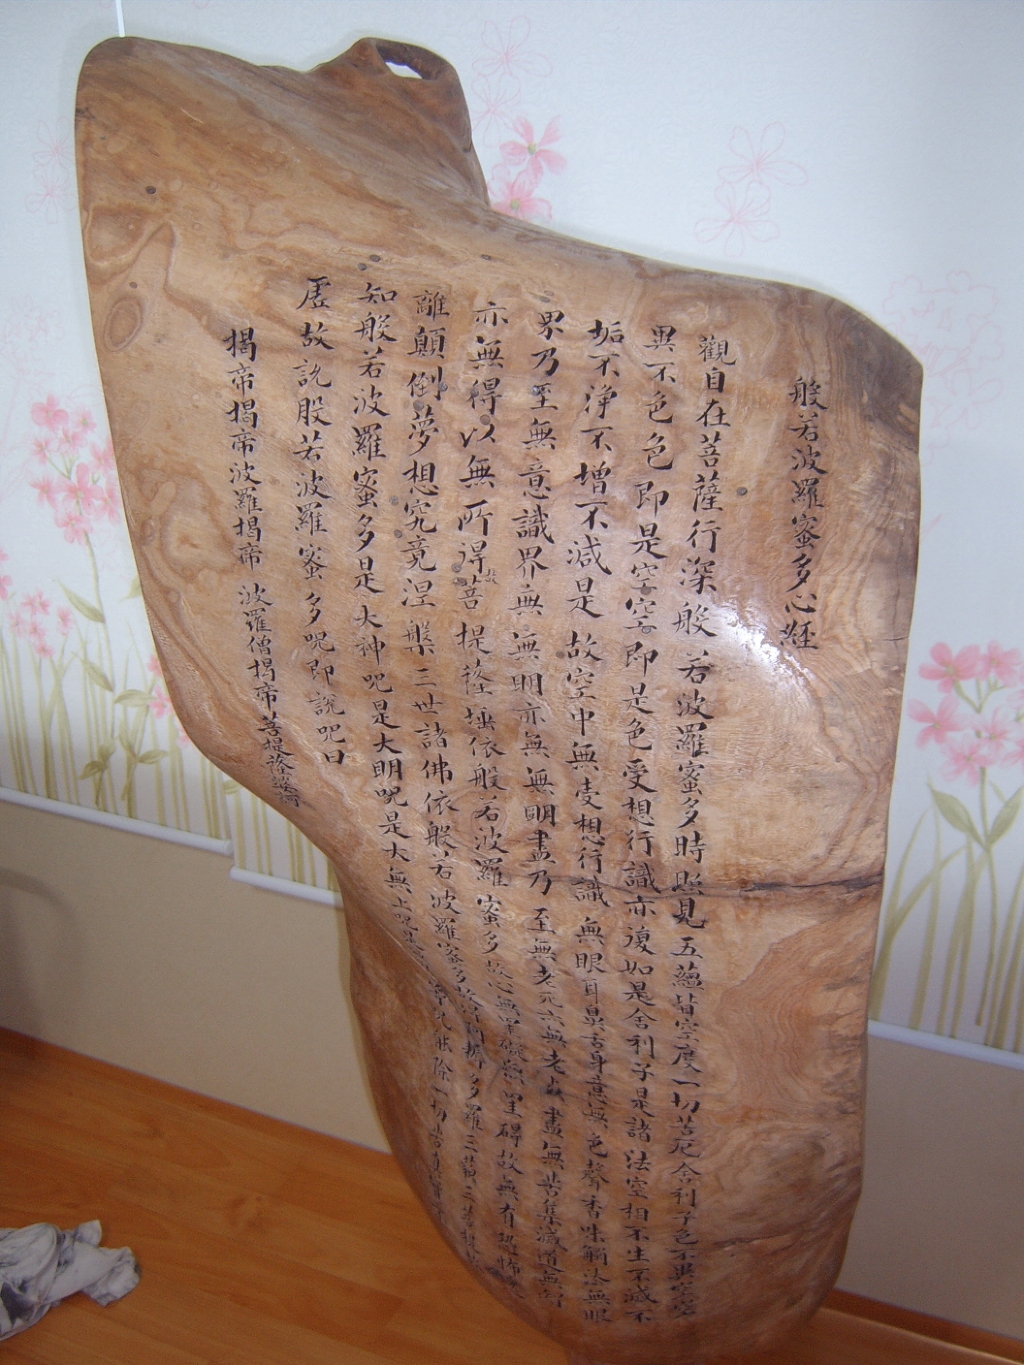 般若波羅蜜多心經
觀自在菩薩行深般若波羅蜜多時照見五蘊皆空度一切苦厄舍利子色不異空空
異不色色即是空空即是色受想行識亦復如是舍利子是諸法空相不生不滅不
垢不淨不增不減是故空中無受想行識無眼耳鼻舌身意無色聲香味觸法無眼
界乃至無意識界無無明亦無無明盡乃至無老死亦無老死盡無苦集滅道無
亦無得以無所得故菩提薩埵依般若波羅蜜多故心無罣礙無罣碍故無有恐怖
離顛倒夢想究竟涅槃三世諸佛依般若波羅蜜多故得多羅三藐三菩提
知般若波羅蜜多是大神呪是大明呪是大無上呪是能除一切苦
虛故說般若波羅蜜多呪即說呪曰
揭帝揭帝波羅揭帝 波羅僧揭帝菩提薩婆訶